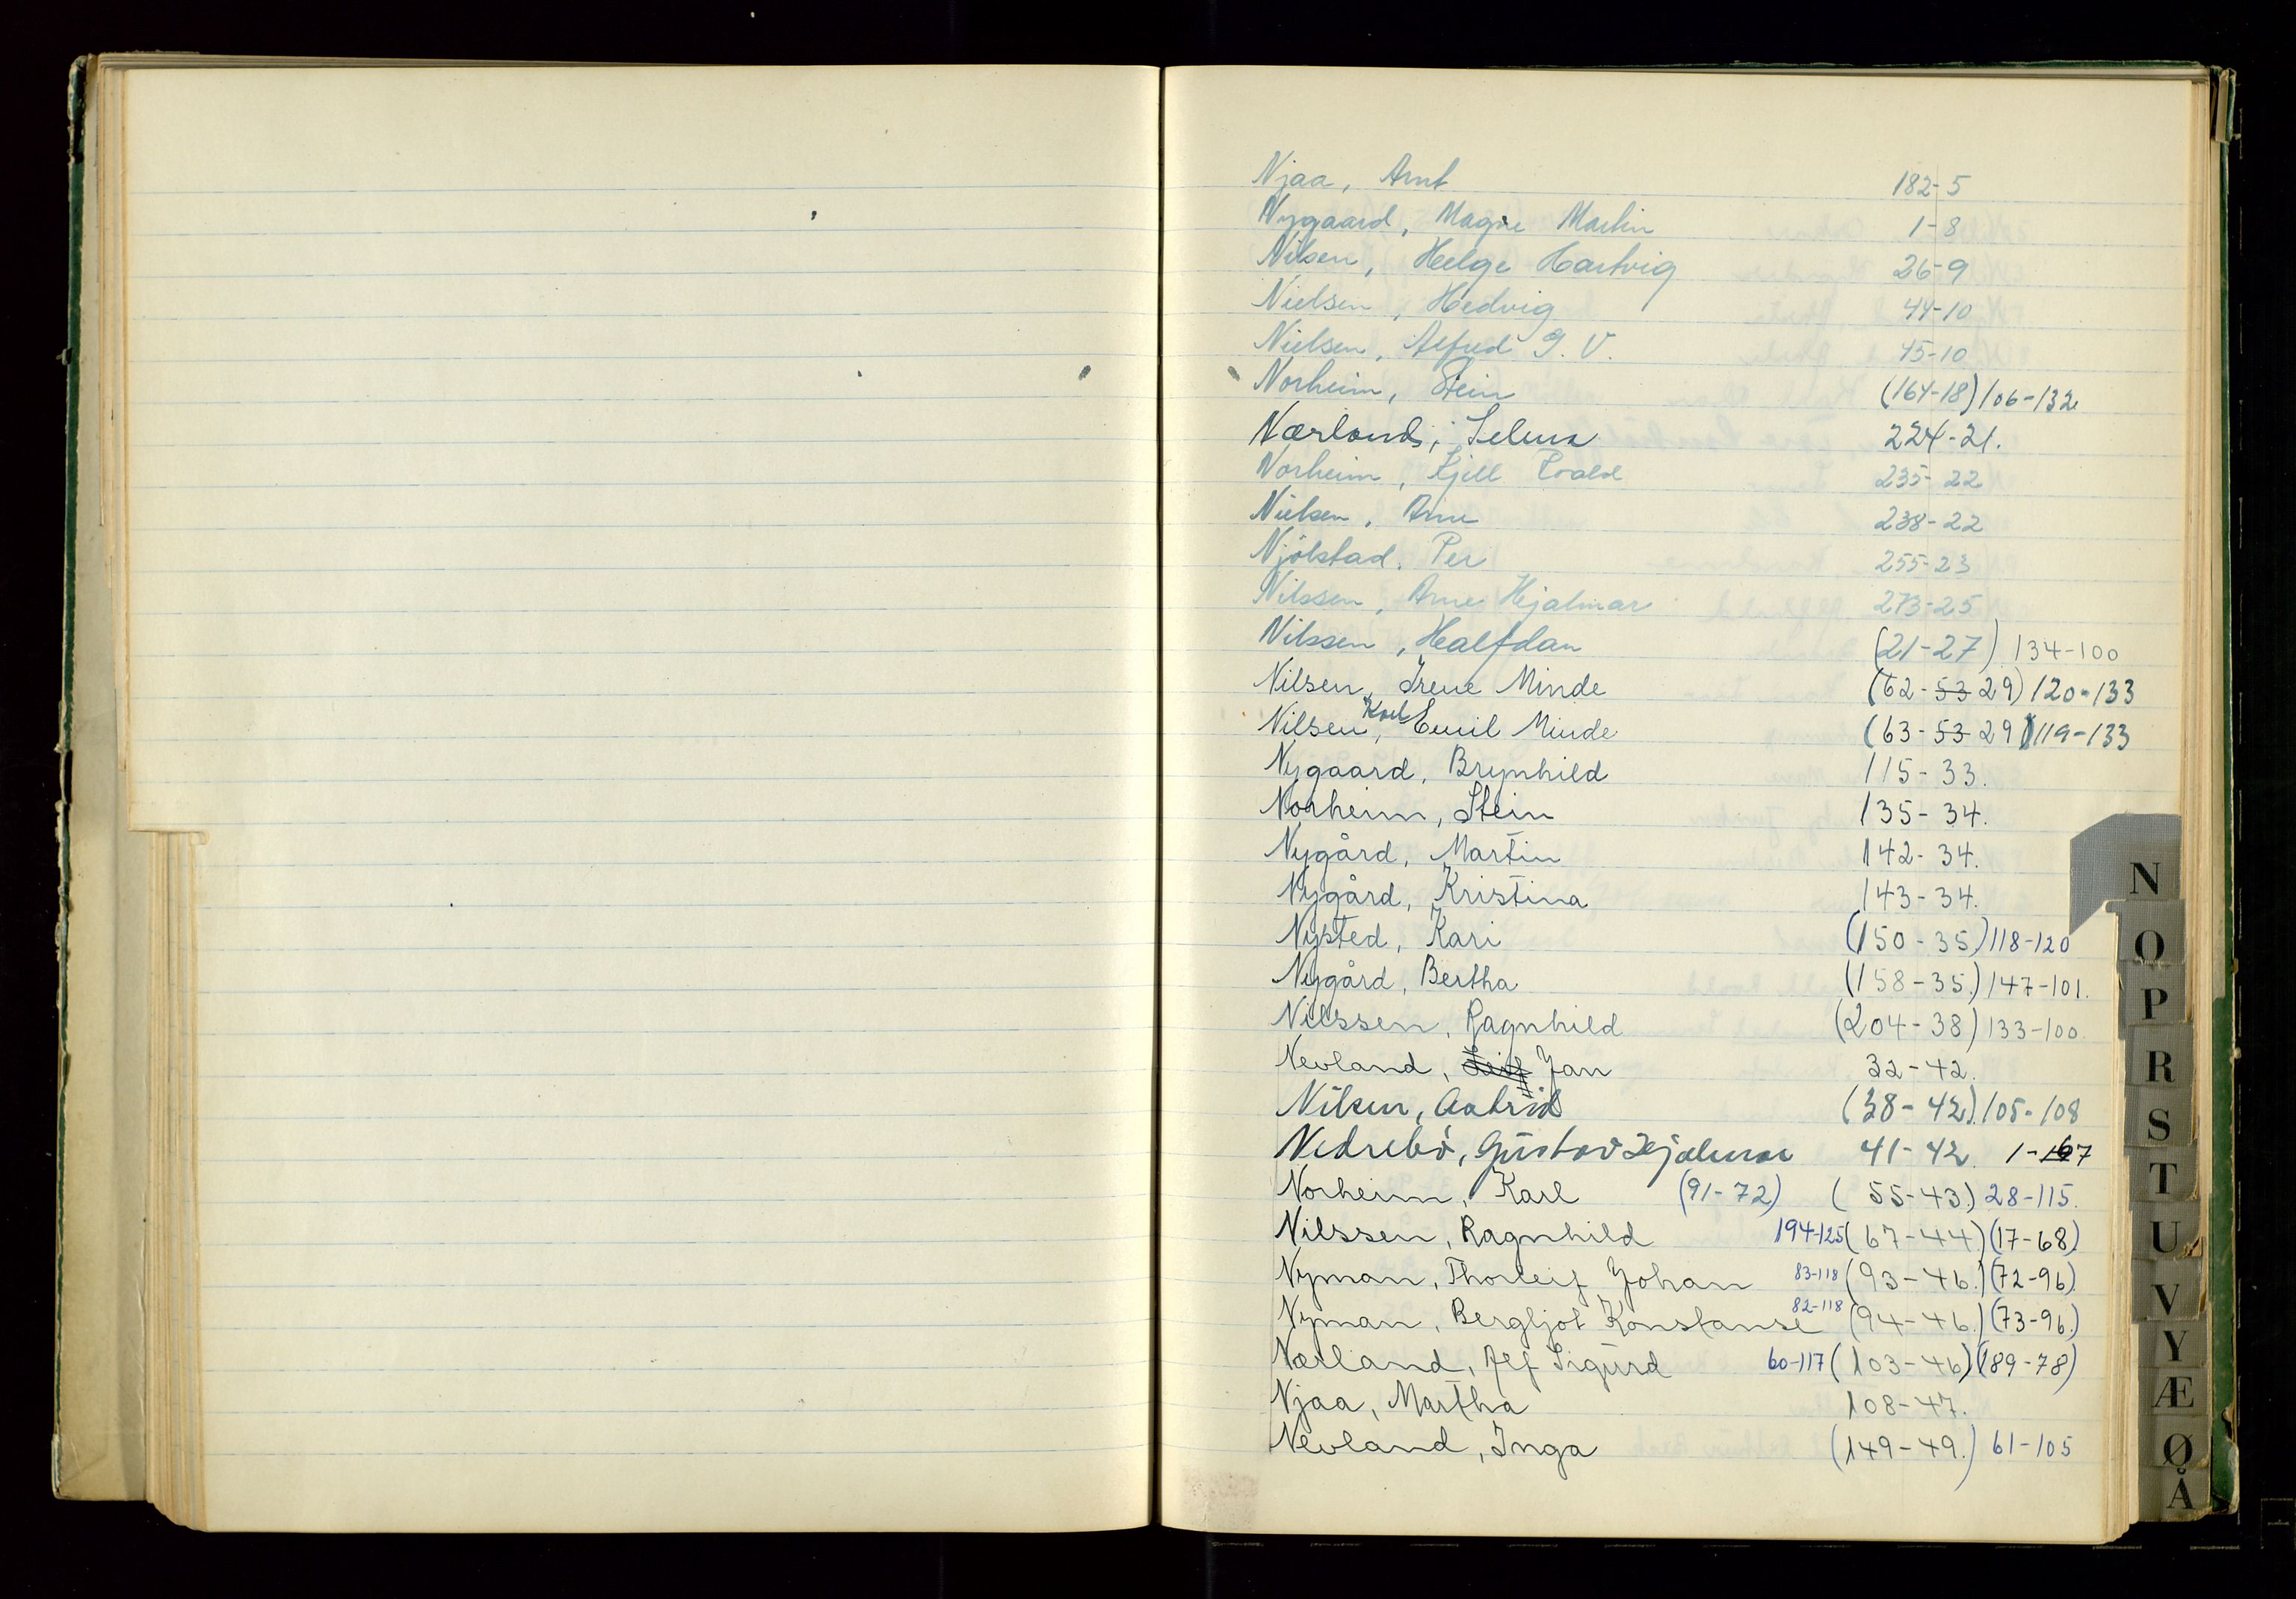 Njaa, Arnt 182-5
Nygaard, Magne Martin 1-8
Nilsen, Helge Hartvig 26-9
Nielsen, Hedvig 44-10
Nielsen, Alfred G. V. 45-10
Norheim, Stein (164-18) 106-132
Nærland, Selma 224-21.
Norheim, Kjell Evald 235-22
Nielsen, Arne 238-22
Njölstad, Per 255-23
Nilssen, Arne Hjalmar 273-25
Nilssen, Halfdan (21-27) 134-100
Nilsen, Irene Minde (62-53 29) 120-133
Nilsen, Karl Emil Minde (63-53 29) 119-133
Nygaard, Brynhild 115-33.
Norheim, Stein 135-34.
Nygård, Martin 142-34.
Nygård, Kristina 143-34.
Nysted, Kari (150-35) 118-120
Nygård, Bertha (158-35.) 147-101.
Nilssen, Ragnhild (204-38) 133-100
Nevland, Leif Jan 32-42.
Nilsen, Astrid (38-42) 105-108
Nedrebö, Gustav Hjalmar 41-42. 1-167
Norheim, Karl (91-72) (55-43) 28-115.
Nilssen, Ragnhild 194-125 (67-44.) (17-68)
Nyman, Thorleif Johan 83-118 (93-46.) (72-96)
Nyman, Bergljot Konstanse 82-118 (94-46.) (73-96.)
Nærland, Alf Sigurd 60-117 (103-46) (189-78)
Njaa, Martha 108-47.
Nevland, Inga (149-49.) 61-105
N
O
P
R
S
T
U
V
Y
Æ
Ø
Å